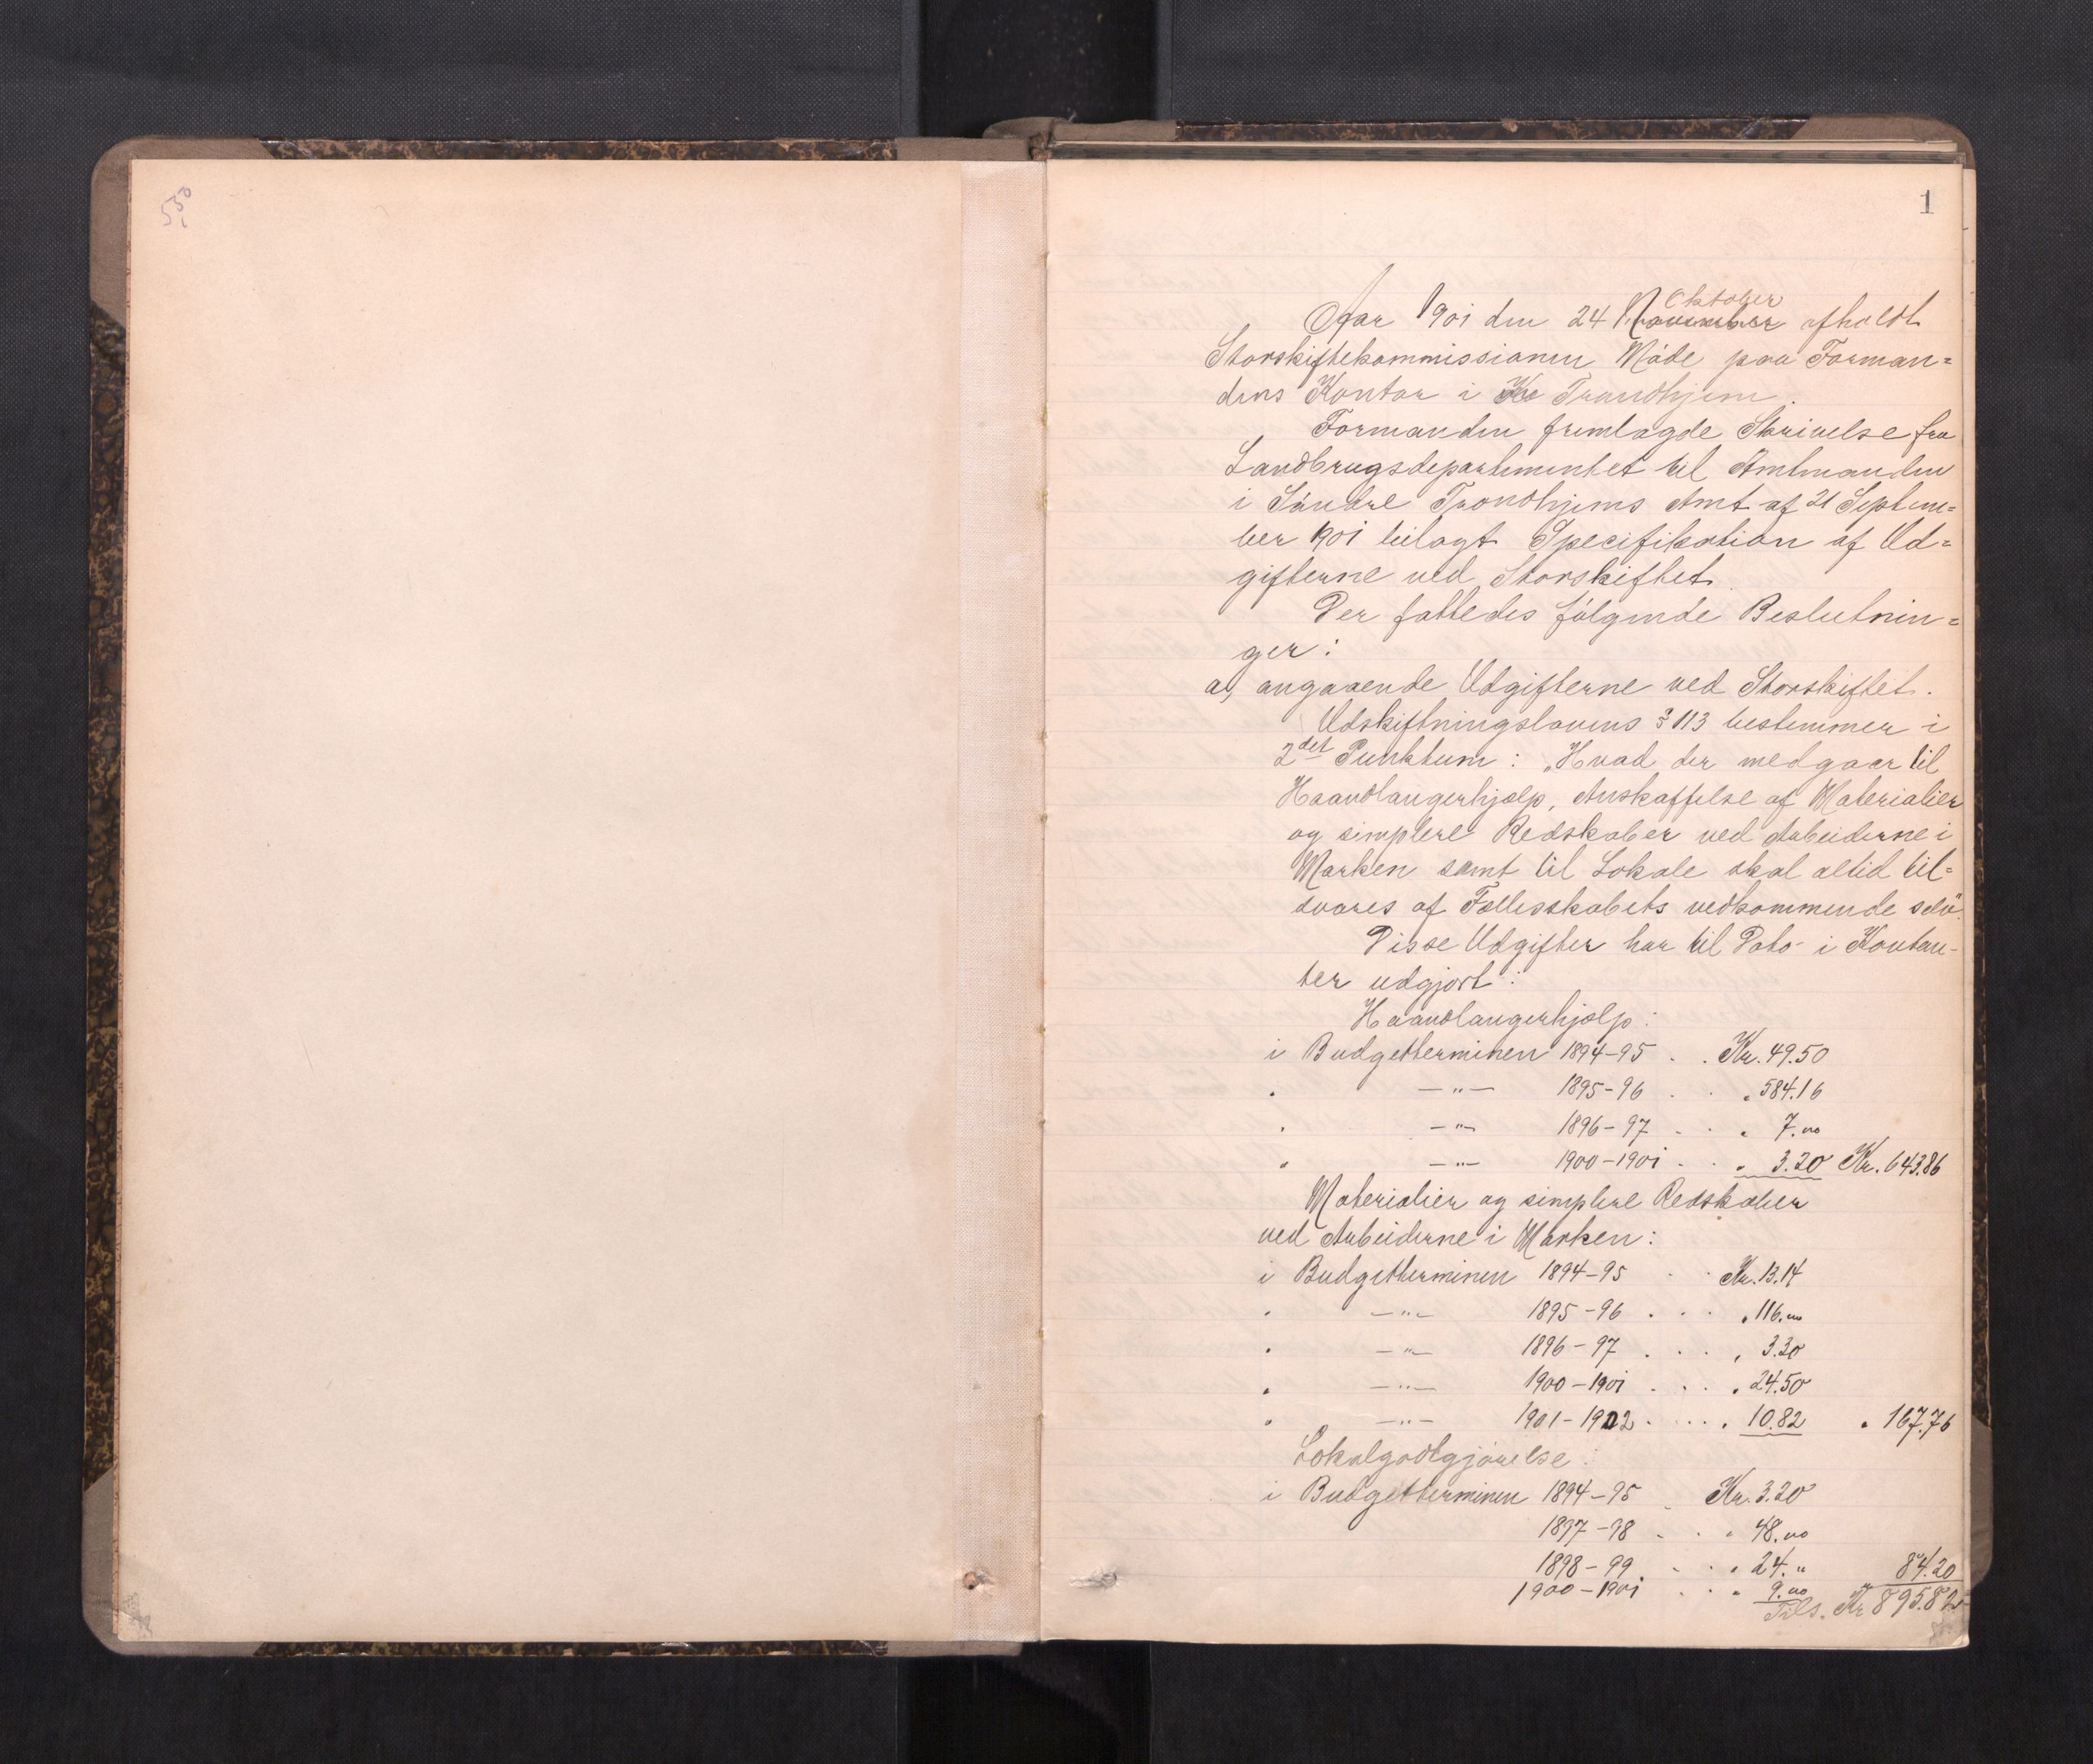 5.50
1
Aar 1901 den 24 November Oktober afholdt
Storskiftekommissionen Möde paa Forman=
dens Kontor i Kr Trondhjem.
Formanden fremlagde Skrivelse fra
Landbrugsdepartementet til Amtmanden
i Söndre Trondhjems Amt af 21 Septem=
ber 1901 bilagt Specifikation af Ud=
gifterne ved Storskiftet.
Der fattedes fölgende Beslutnin=
ger:
a, angaaende Udgifterne ved Storskiftet.
Udskiftningslovens § 113 bestemmer i
2det Punktum: „Hvad der medgaar til
Haandlangerhjælp, Anskaffelse af Materialier
og simplere Redskaber ved Arbeiderne i
Marken samt til Lokale skal altid til=
svares af Fællesskabets vedkommende selv".
Disse Udgifter har til Dato i Kontan-
ter udgjort:
Haandlangerhjælp:
i Budgetterminen 1894-95 . . Kr. 49.50
" —"— 1895-96 . . " 584.16
" —"— 1896-97 . . " 7.00
" —"— 1900-1901 . . " 3.20 Kr. 643.86
Materialier og simplere Redskaber
ved Arbeiderne i Marken:
i Budgetterminen 1894-95 . . Kr. 13.14
" —"— 1895-96 . . . " 116.00
" —"— 1896-97 . . . " 3.30
" —"— 1900-1901 . . . " 24.50
" —"— 1901-1902 . . . " 10.82 " 167.76
Lokalgodtgjörelse:
i Budgetterminen 1894-95 . Kr. 3.20
1897-98 . . " 48.00
1898-99 . . " 24." 84.20
1900-1901 . . " 9.00
Tils. Kr 895.82